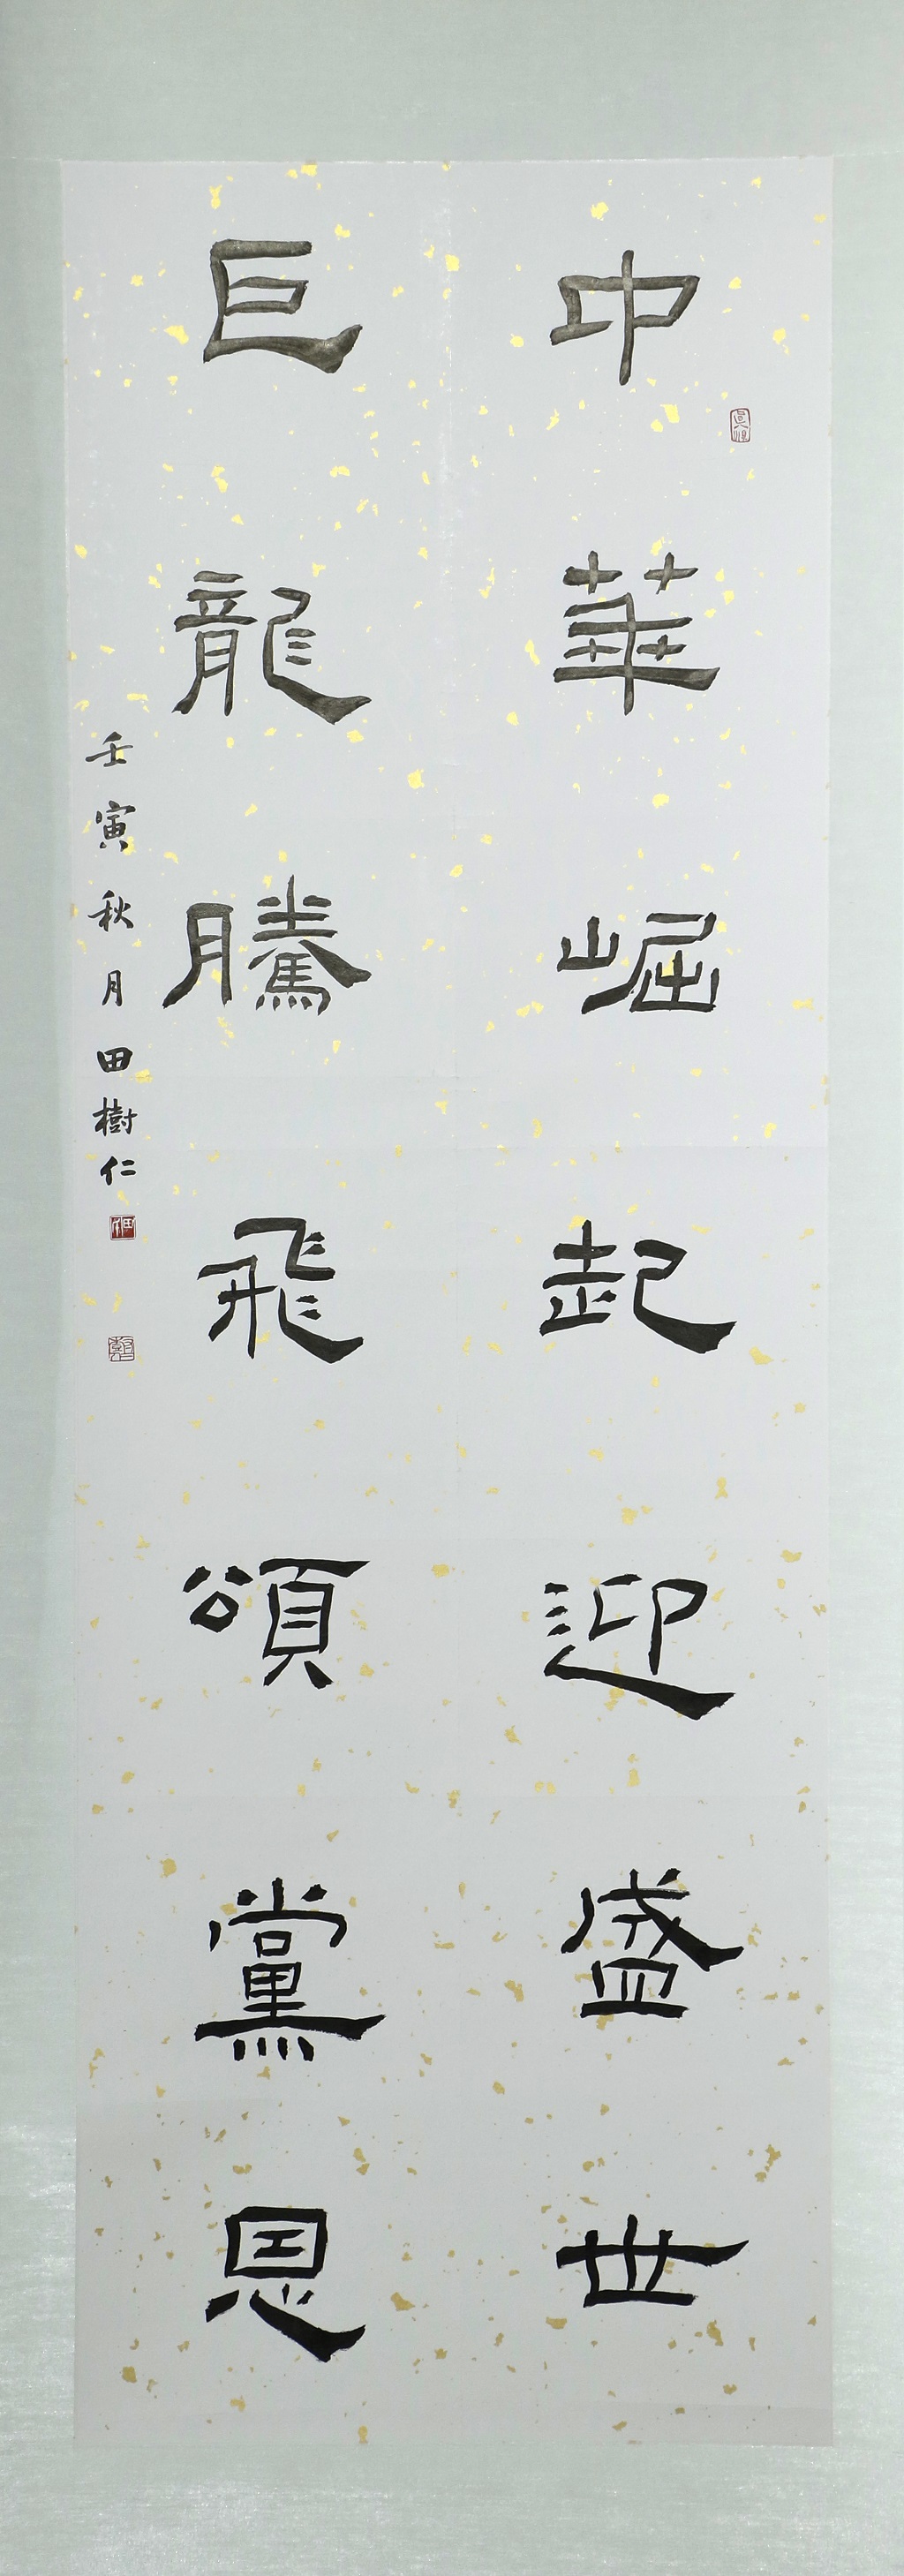 中華崛起迎盛世
巨龍騰飛頌黨恩
壬寅秋月田樹仁